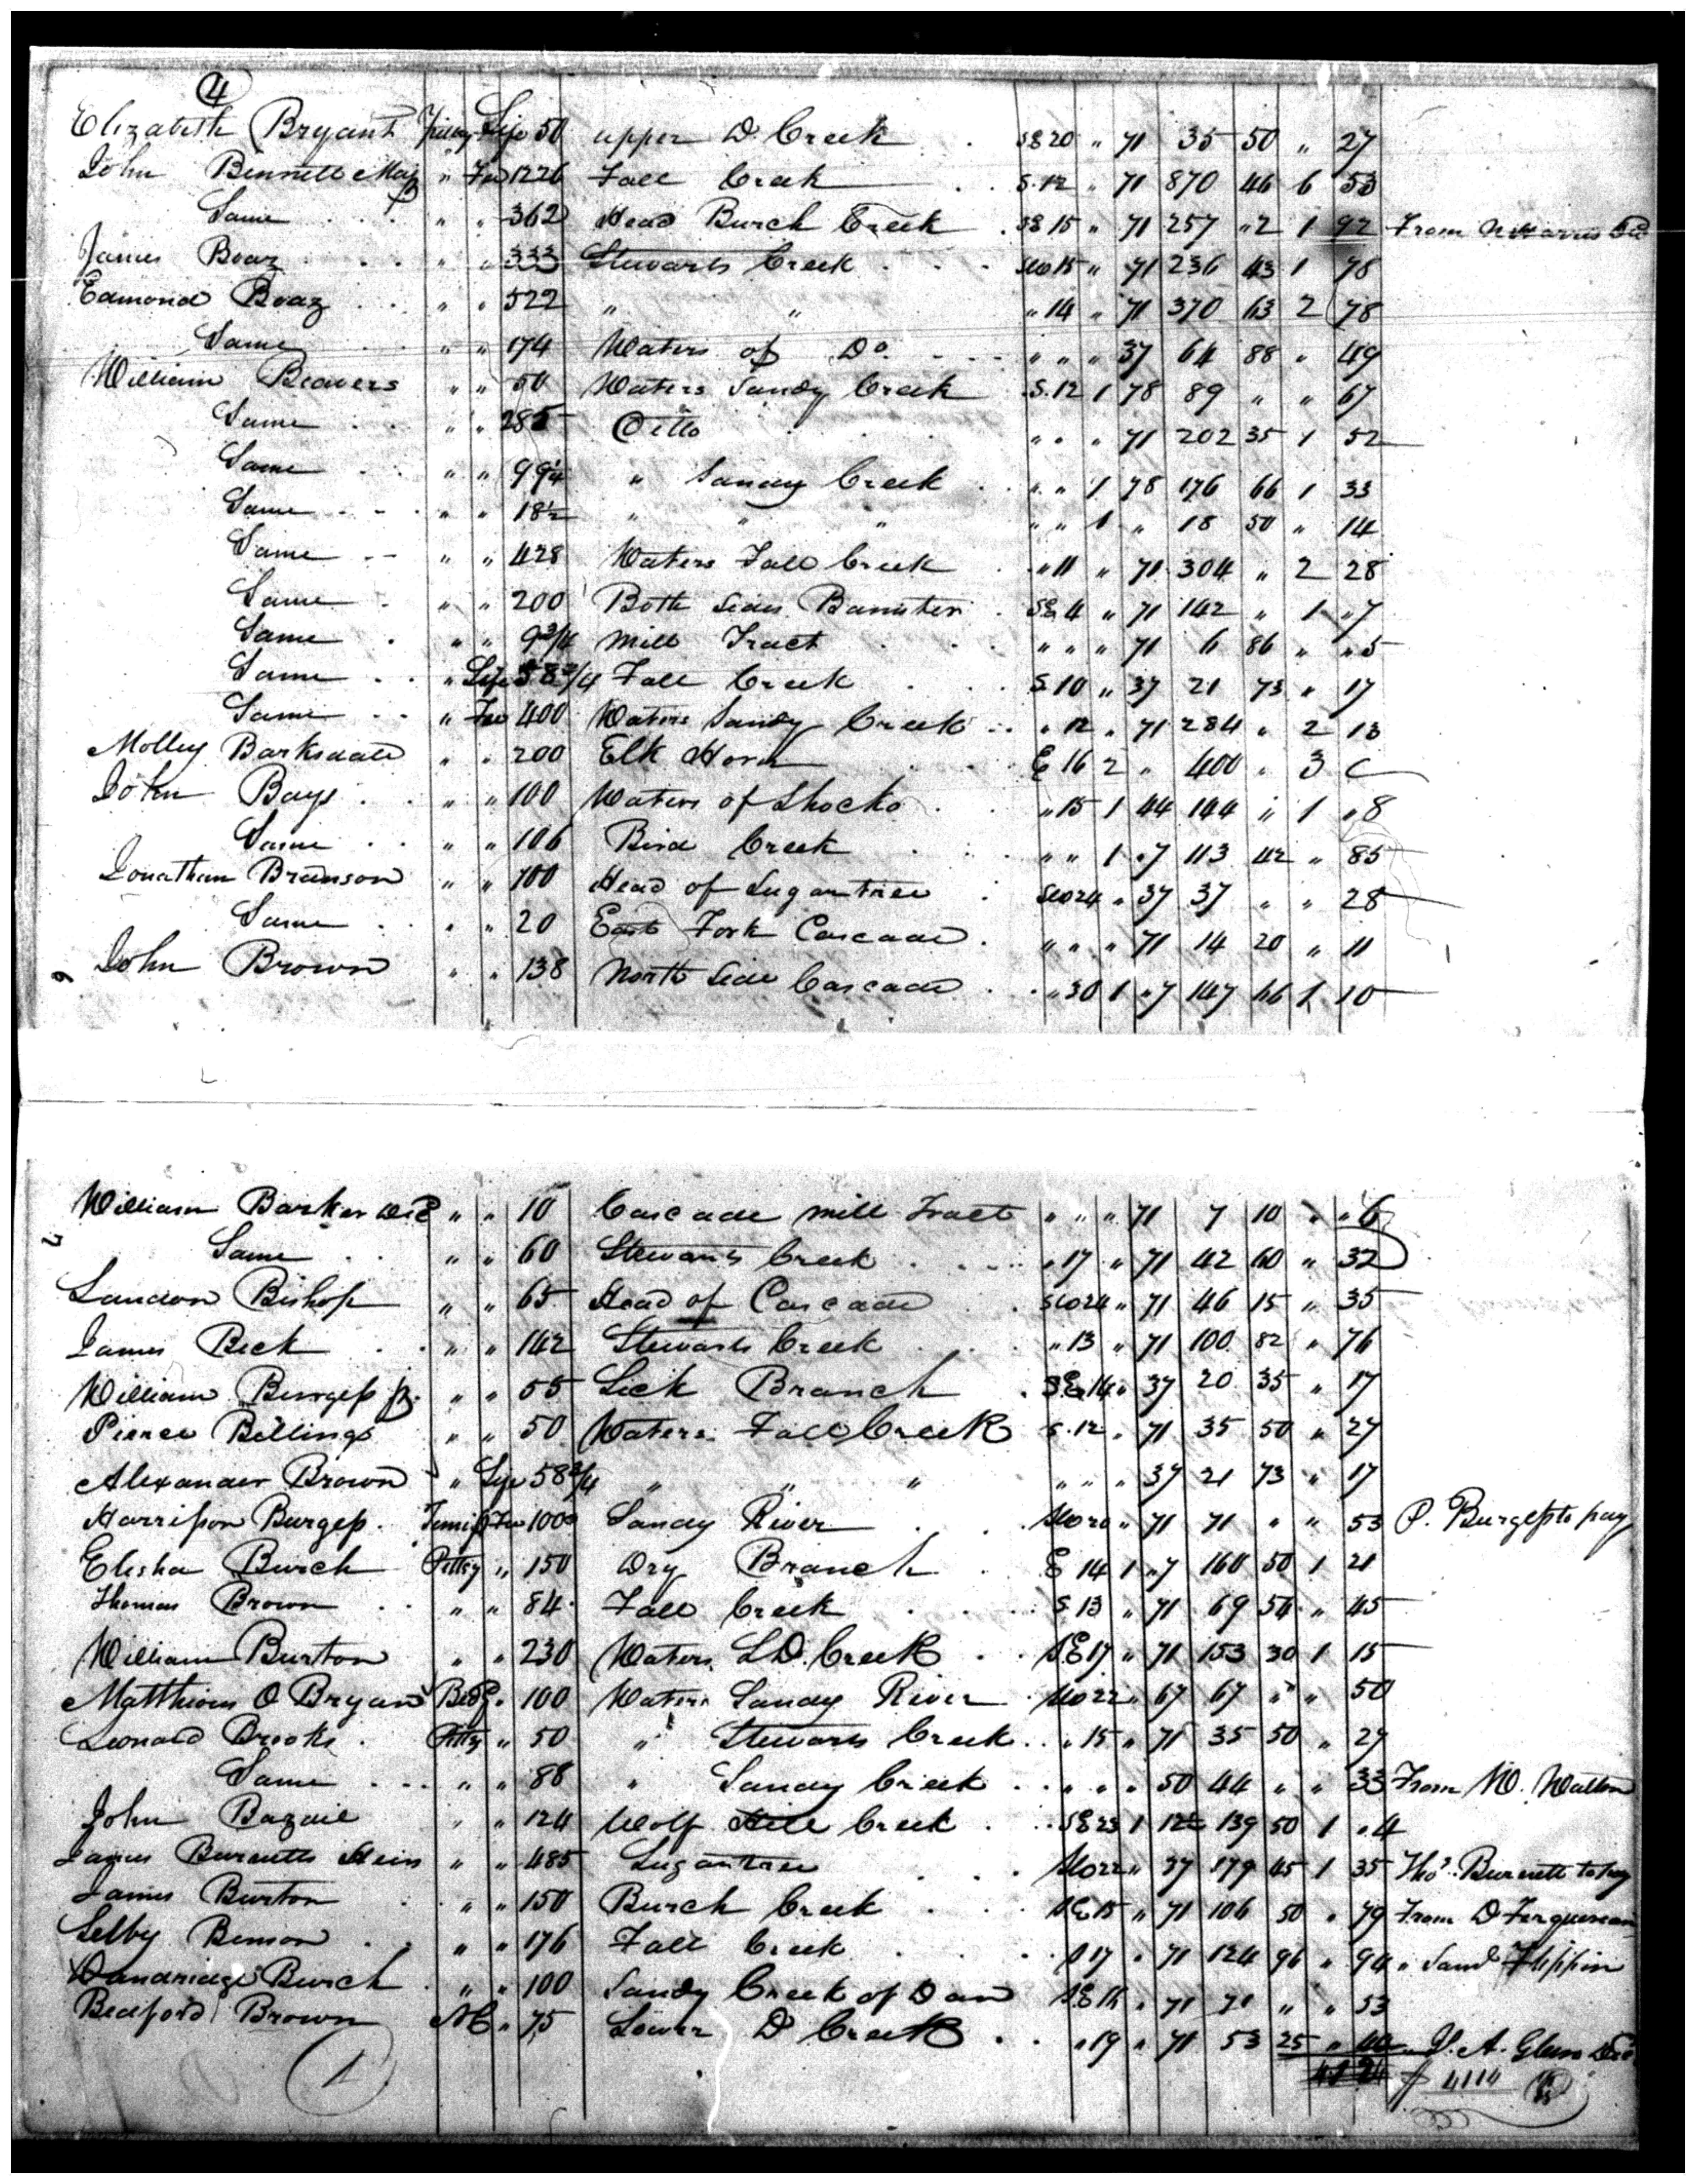 4
Elizabeth Bryant Pittsy Life 50 upper D. Creek . SE 20 " 71 35 50 " 27
John Bennett Maj " Fee 1226 Fall Creek . . S. 12 " 71 870 46 6 53
Same . . . " " 362 Head Burch Creek . SE 15 " 71 257 "2 1 92 From
James Boaz . . . " " 333 Stewarts Creek . . . SW 15 " 71 236 43 1 78
Edmond Boaz . . " " 522 " " " 14 " 71 370 63 2 78
Same " " 174 Waters of Do. . . . " " " 37 64 88 " 49
William Beavers " " 50 Waters Sandy Creek S. 12 1 78 89 " " 67
Same . . " " 285 Ditto . . . " " " 71 202 35 1 52
Same . . " " 99¼ " Sandy Creek . " " 1 78 176 66 1 33
Same . . . " " 18½ " " " " " 1 " 18 50 " 14
Same . . " " 428 Waters Fall Creek . " 11 " 71 304 " 2 28
Same . " " 200 Both sides Banister . SE 4 " 71 142 " 1 "7
Same . " " 9¾ Mill Tract . . . " " " 71 6 86 " "5
Same . . " Life 58¾ Fall Creek . . S 10 " 37 21 73 " 17
Same . . " Fee 400 Waters Sandy Creek . . " 12 " 71 284 " 2 13
Molley Barksdale " " 200 Elk Horn . . E 16 2 " 400 " 3
John Bays . . " " 100 Waters of Shocko . . " 15 1 44 144 " 1 "8
Same . . " " 106 Bird Creek . . . " " 1 "7 113 42 " 85
Jonathan Brunson " " 100 Head of Sugartree . SW 24 " 37 37 " " 28
Same . . " " 20 East Fork Cascade . " " " 71 14 20 " 11
John Brown " " 138 North Side Cascade . . " 30 1 "7 147 66 1 10
William Barker " " 10 Cascade Mill Tract " " " 71 7 10 " "6
Same . . " " 60 Stewarts Creek . . . . " 17 " 71 42 60 " 32
Landon Bishop " " 65 Head of Cascade . SW 24 " 71 46 15 " 35
James Beck . . " " 142 Stewarts Creek . . . " 13 " 71 100 82 " 76
William Burgess jr. " " 55 Lick Branch . SE 14 " 37 20 35 " 17
Pierce Billings " " 50 Waters Fall Creek S. 12 " 71 35 50 " 27
Alexander Brown " Life 58¾ " " " " " " 37 21 73 " 17
Harrison Burgess . Fee 100 Sandy River . . SW 20 " 71 71 " " 53 P. Burgess to pay
Elisha Burch Pittsy " 150 Dry Branch . E 14 1 "7 160 50 1 21
Thomas Brown . . " " 84 Fall Creek . . . S 13 " 71 69 54 " 45
William Burton " " 230 Waters L.D. Creek . . SE 17 " 71 153 30 1 15
Matthew O Bryan Bedfd " 100 Waters Sandy River . SW 22 " 67 67 " " 50
Leonard Brooks . Pittsy " 50 " Stewarts Creek . . " 15 " 71 35 50 " 27
Same . . . " " 88 " Sandy Creek . . " " " 50 44 " " 33 From W. Walton
John Bazail " " 124 Wolf Hill Creek . . SE 23 1 12½ 139 50 1 "4
James Burnetts Heirs " " 485 Sugartree . . SW 22 " 37 179 45 1 35 Thos. Burnett to pay
James Burton . " " 150 Burch Creek . . . SE 15 " 71 106 50 " 79 From D Ferguson
Selby Benson . . " " 176 Fall Creek . . . S 17 " 71 124 96 " 94 " Saml Flippin
Dandridge Burch . " " 100 Sandy Creek of Dan SE 16 " 71 71 " " 53
Bedford Brown NC " 75 Lower D Creek . . " 19 " 71 53 25 " 40 J. A. Glenn
1 $ 4114